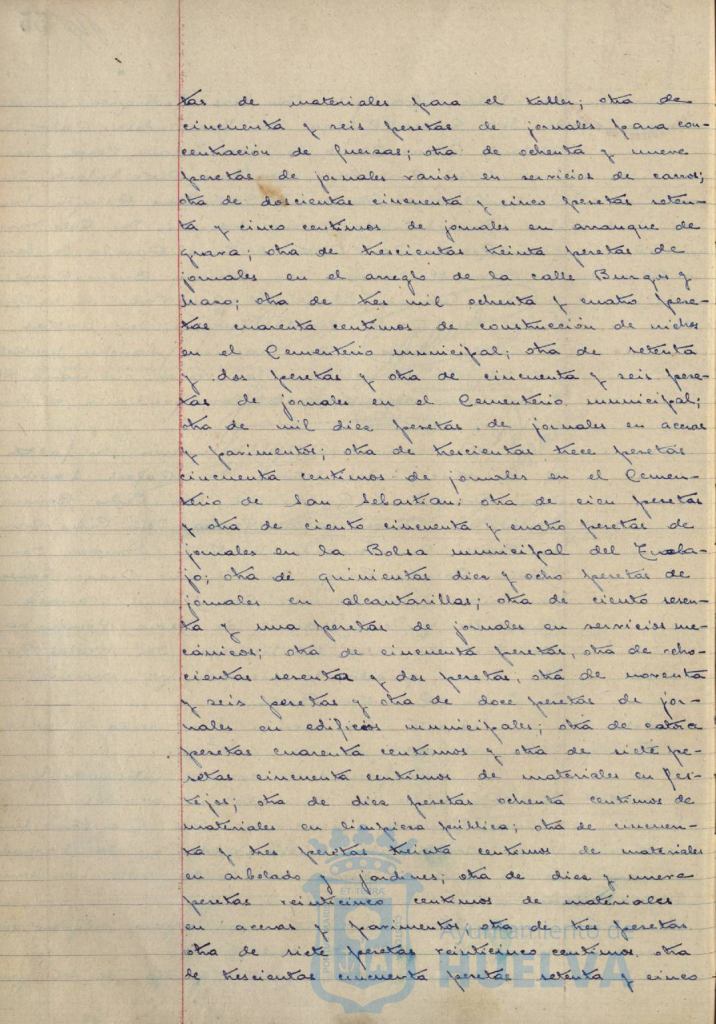 tas de materiales para el taller; otra de
cincuenta y seis pesetas de jornales para con-
centración de fuerzas; otra de ochenta y nueve
pesetas de jornales varios en servicios de carros;
otra de doscientas cincuenta y cinco pesetas seten-
ta y cinco centimos de jornales en arranque de
grava; otra de trescientas treinta pesetas de
jornales en el arreglo de la calle Burgos y
Mazo; otra de tres mil ochenta y cuatro pese-
tas cuarenta centimos de construcción de nichos
en el Cementerio municipal; otra de setenta
y dos pesetas y otra de cincuenta y seis pese-
tas de jornales en el Cementerio municipal;
otra de mil diez pesetas de jornales en aceras
y pavimentos; otra de trescientas trece pesetas
cincuenta centimos de jornales en el Cemen-
terio de San Sebastian; otra de cien pesetas
y otra de ciento cincuenta y cuatro pesetas de
jornales en la Bolsa municipal del Traba-
jo; otra de quinientas diez y ocho pesetas de
jornales en alcantarillas; otra de ciento sesen-
ta y una pesetas de jornales en servicios me-
cánicos; otra de cincuenta pesetas, otra de ocho-
cientas sesenta y dos pesetas, otra de noventa
y seis pesetas y otra de doce pesetas de jor-
nales en edificios municipales; otra de catorce
pesetas cuarenta centimos y otra de siete pe-
setas cincuenta centimos de materiales en fes-
tejos; otra de diez pesetas ochenta centimos de
materiales en limpieza pública; otra de cincuen-
ta y tres pesetas treinta centimos de materiales
en arbolado y jardines; otra de diez y nueve
pesetas veinticinco centimos de materiales
en aceras y pavimentos, otra de tres pesetas
otra de siete pesetas veinticinco centimos, otra
de trescientas cincuenta pesetas setenta y cinco
Ayuntamiento de
HUELVA